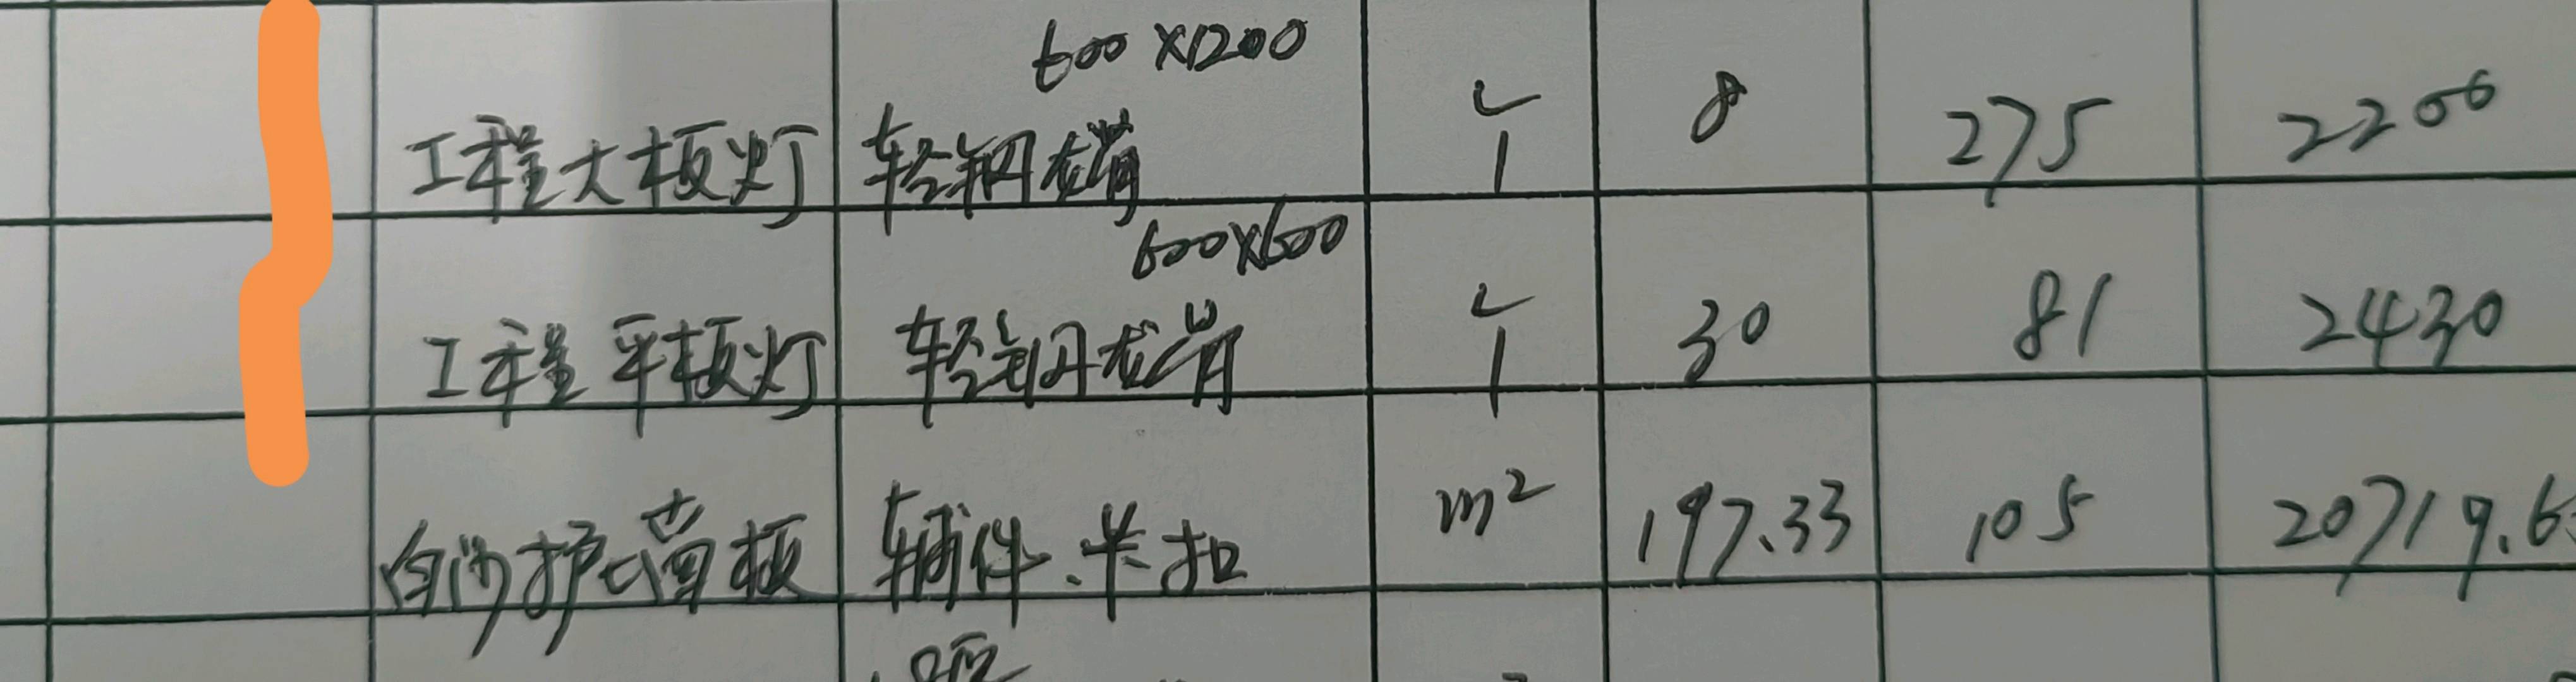 600×1200
工程大板灯 轻钢龙骨 个 8 275 2200
600×600
工程平板灯 轻钢龙骨 个 30 81 2430
护墙板 辅件、卡扣 m² 197.33 105 20719.6